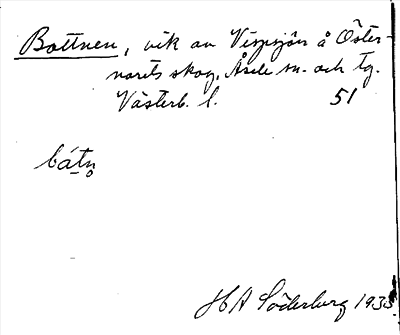 Bottnen, vik av Vispsjön å Öster-
norets skog, Åsele sn. och tg.
Västerb. l. 51
bátn̥
H A Söderberg 1933